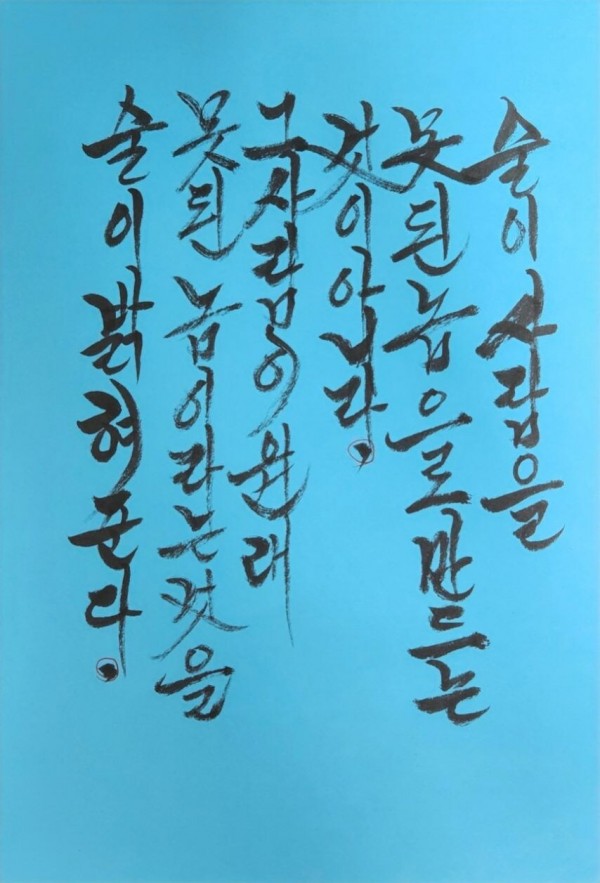 술이 사람을
못된 놈으로 만드는
것이 아니라.
그 사람이 원래
못된 놈이라는 것을
술이 밝혀준다.